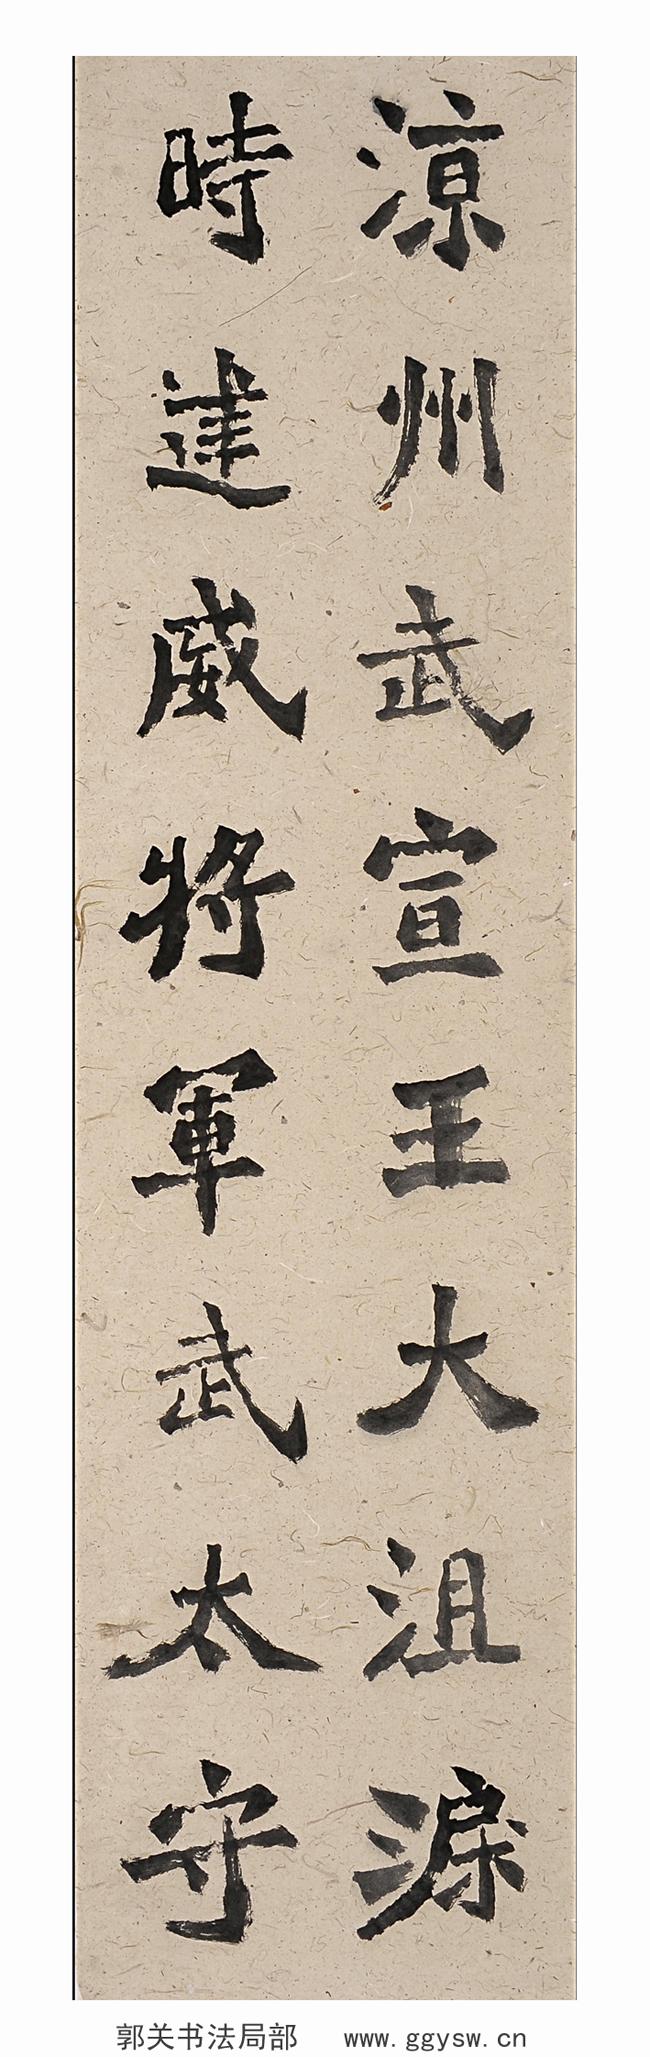 涼州武宣王大沮渠
時建威將軍武太守
郭关书法局部 www.ggysw.cn